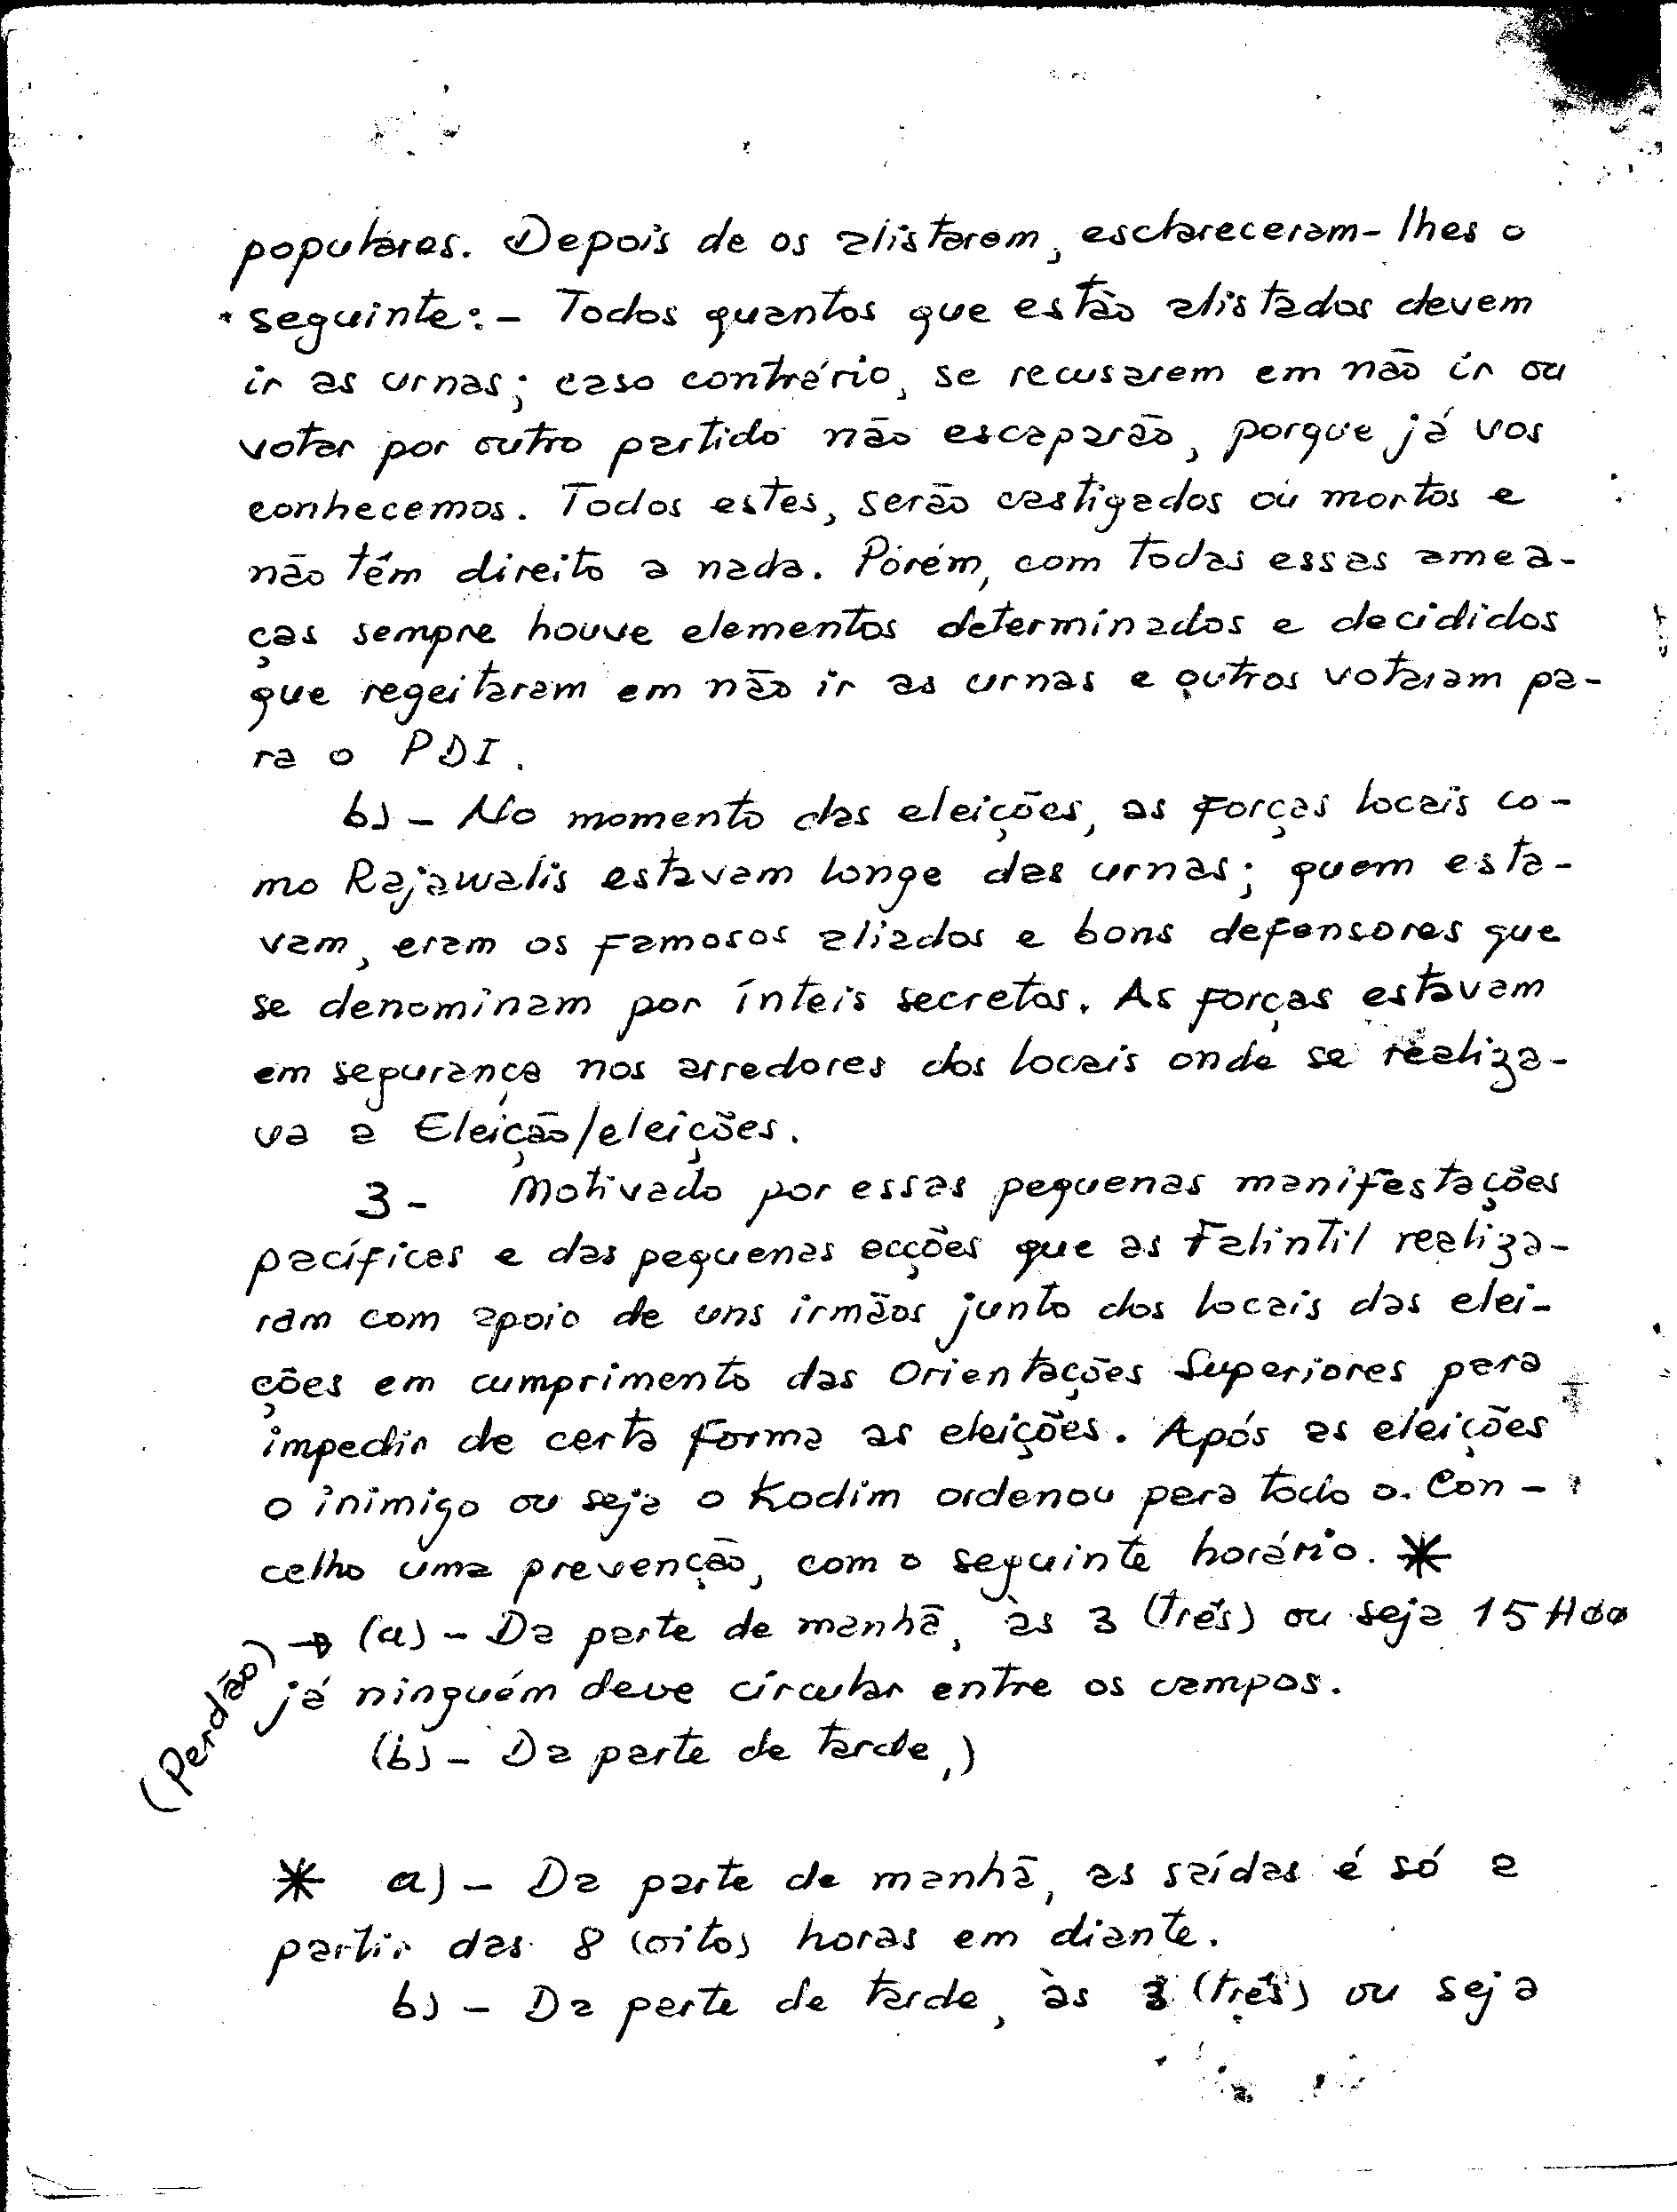 populares. Depois de os alistarem, esclareceram-lhes o
seguinte: - Todos quantos que estão alistados devem
ir as urnas; caso contrário, se recusarem em não ir ou
votar por outro partido não escaparão, porque já vos
conhecemos. Todos estes, serão castigados ou mortos e
não têm direito a nada. Porém, com todas essas amea-
ças sempre houve elementos determinados e decididos
que regeitaram em não ir as urnas e outros votaram pa-
ra o PDI.
b) - No momento das eleições, as forças locais co-
mo Rajawalis estavam longe das urnas; quem esta-
vam, eram os famosos aliados e bons defensores que
se denominam por ínteis secretos. As forças estavam
em segurança nos arredores dos locais onde se realiza-
va a Eleição/eleições.
3 - Motivado por essas pequenas manifestações
pacíficas e das pequenas acções que as Falintil realiza-
ram com apoio de uns irmãos junto dos locais das elei-
ções em cumprimento das Orientações Superiores para
impedir de certa forma as eleições. Após as eleições
o inimigo ou seja o Kodim ordenou para todo o Con-
celho uma prevenção, com o seguinte horário. *
(Perdão) → (a) - Da parte de manhã, às 3 (três) ou seja 15H00
já ninguém deve circular entre os campos.
(b) - Da parte de tarde,)
* a) - Da parte de manhã, as saídas é só a
partir das 8 (oito) horas em diante.
b) - Da parte de tarde, às 3 (três) ou seja